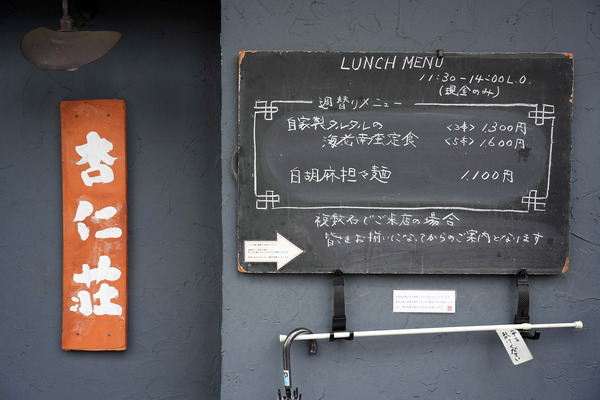 杏仁荘
LUNCH MENU
11:30-14:00 L.O.
(現金のみ)
週替りメニュー
自家製タルタルの <3本> 1,300円
海老南蛮定食 <5本> 1,600円
白胡麻担々麺 1,100円
複数名でご来店の場合
皆さまお揃いになってからのご案内となります